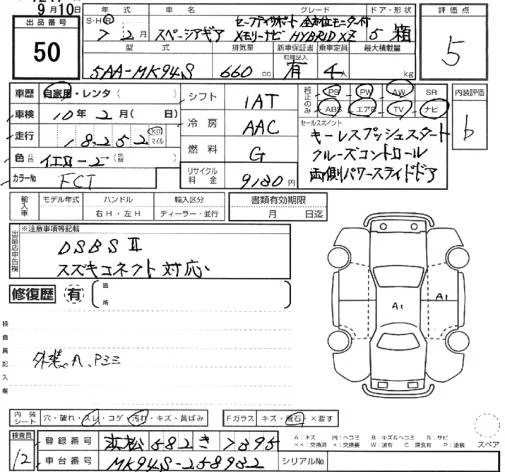 9月10日
出品番号
50
年式 車名 グレード ドア・形状
S・H・R 7年 2月 スペーシアギア セーフティサポート 全方位モニター付
メモリーナビ HYBRID XZ 5 箱
評価点
5
型式 排気量 新車保証書 乗車定員 最大積載量
5AA-MK94S 660cc 有 4人 kg
車歴 自家用・レンタ( )
車検 10年 2月( )
走行 18252 Km マイル
色 イエロー2
カラーNo FCT
シフト 1AT
冷房 AAC
燃料 G
リサイクル料金 9180円
純正のみ PS PW AW SR
ABS エアB TV ナビ
セールスポイント
キーレスプッシュスタート
クルーズコントロール
両側パワースライドドア
内装評価
b
輸入車 モデル年式 ハンドル 輸入区分
右H・左H ディーラー・並行
書類有効期限
月 日迄
出品店申告欄
※注意事項等記載
DSBSⅡ
スズキコネクト対応
修復歴 有 箇所
検査員記入欄
外装A、Pミミ
A1 A1
内装シート 穴・破れ・スレ・コゲ・汚れ・キズ・黄ばみ
Fガラス キズ・飛石・×要す
検査員 12
登録番号 浜松 582 き 7395
車台番号 MK94S-258982
シリアルNo
A:キズ U:ヘコミ B:キズ&ヘコミ S:サビ
××:交換済 ×:要交換 W:波 C:腐食 P:塗装
スペア